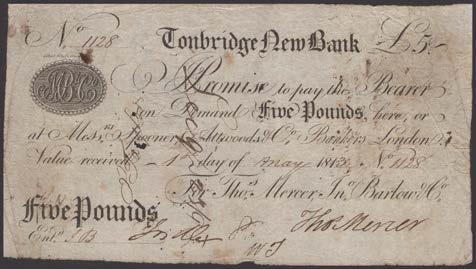 No 1128 Tonbridge New Bank £5:-
I Promise to pay the Bearer
on Demand Five Pounds, here, or
at Messrs Spooner Attwoods & Co. Bankers London
Value received 1 day of May 1813 No 1128
For Thos Mercer, Jno Barlow & Co.
Five Pounds
Entd J B Thos Mercer